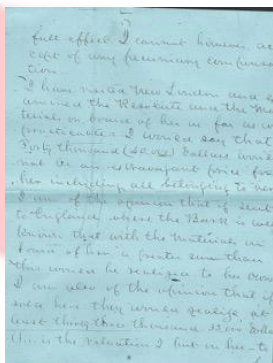 full effect I cannot however ac
cept of any pecuniary compensa
tion.
I have visited New London and ex
amined the Resolute and the Ma
terials on board of her as far as
practicable & I would say that
Forty thousand (40,000) Dollars would
not be an extravagant price for
her including all belonging to her
I am of the opinion that if sent
to England where the Bark is well
known that with the materials on
board of her a greater sum than
this would be realized to her own
I am also of the opinion that if
sold here they would realize, at
least thirty three thousand Dollars
this is the valuation I put on her